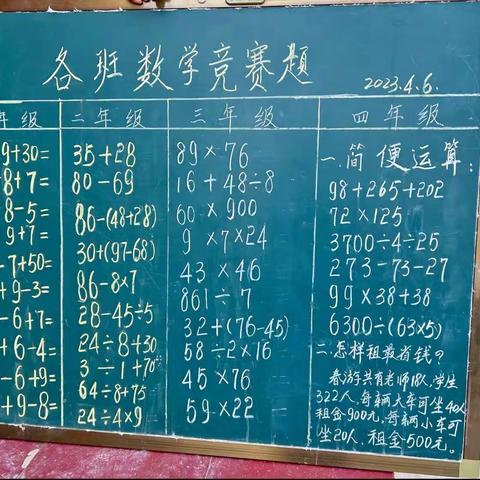 各班数学竞赛题
2023.4.6.
年级
9+30=
8+7=
8-5=
9+7=
-7+50=
+9-3=
-6+7=
+6-4=
-6+9=
+9-8=
二年级
35+28
80-69
86-(48+28)
30+(97-68)
86-8×7
28-45÷5
24÷8+30
3÷1+70
64÷8+75
24÷4×9
三年级
89×76
16+48÷8
60×900
9×7×24
43×46
861÷7
32+(76-45)
58÷2×16
45×76
59×22
四年级
一.简便运算:
98+265+202
72×125
3700÷4÷25
273-73-27
99×38+38
6300÷(63×5)
二.怎样租最省钱?
春游共有老师18人,学生
322人,每辆大车可坐40人
租金900元,每辆小车可
坐20人,租金500元。